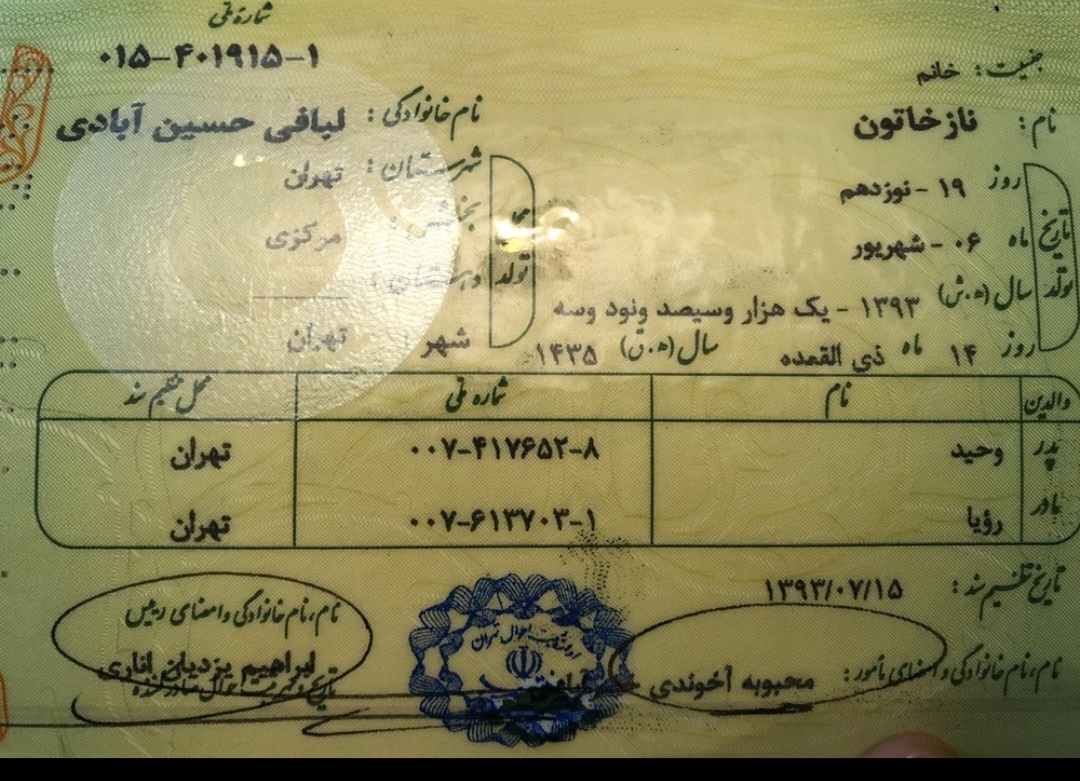 شماره ملی
۰۱۵-۴۰۱۹۱۵-۱
جنسیت: خانم
نام: نازخاتون
نام خانوادگی: لبافی حسین آبادی
تاریخ تولد
روز ۱۹ - نوزدهم
ماه ۰۶ - شهریور
سال (ه.ش) ۱۳۹۳ - یک هزار وسیصد ونود وسه
روز ۱۴ ماه ذی القعده سال (ه.ق) ۱۴۳۵
تولد
شهرستان: تهران
بخش: مرکزی
دهستان:
شهر تهران
والدین نام شماره ملی محل تنظیم سند
پدر وحید ۰۰۷-۴۱۷۶۵۲-۸ تهران
مادر رؤیا ۰۰۷-۶۱۳۷۰۳-۱ تهران
تاریخ تنظیم سند: ۱۳۹۳/۰۷/۱۵
نام، نام خانوادگی و امضای مأمور: محبوبه آخوندی
نام، نام خانوادگی و امضای رییس
ابراهیم یزدیان اناری